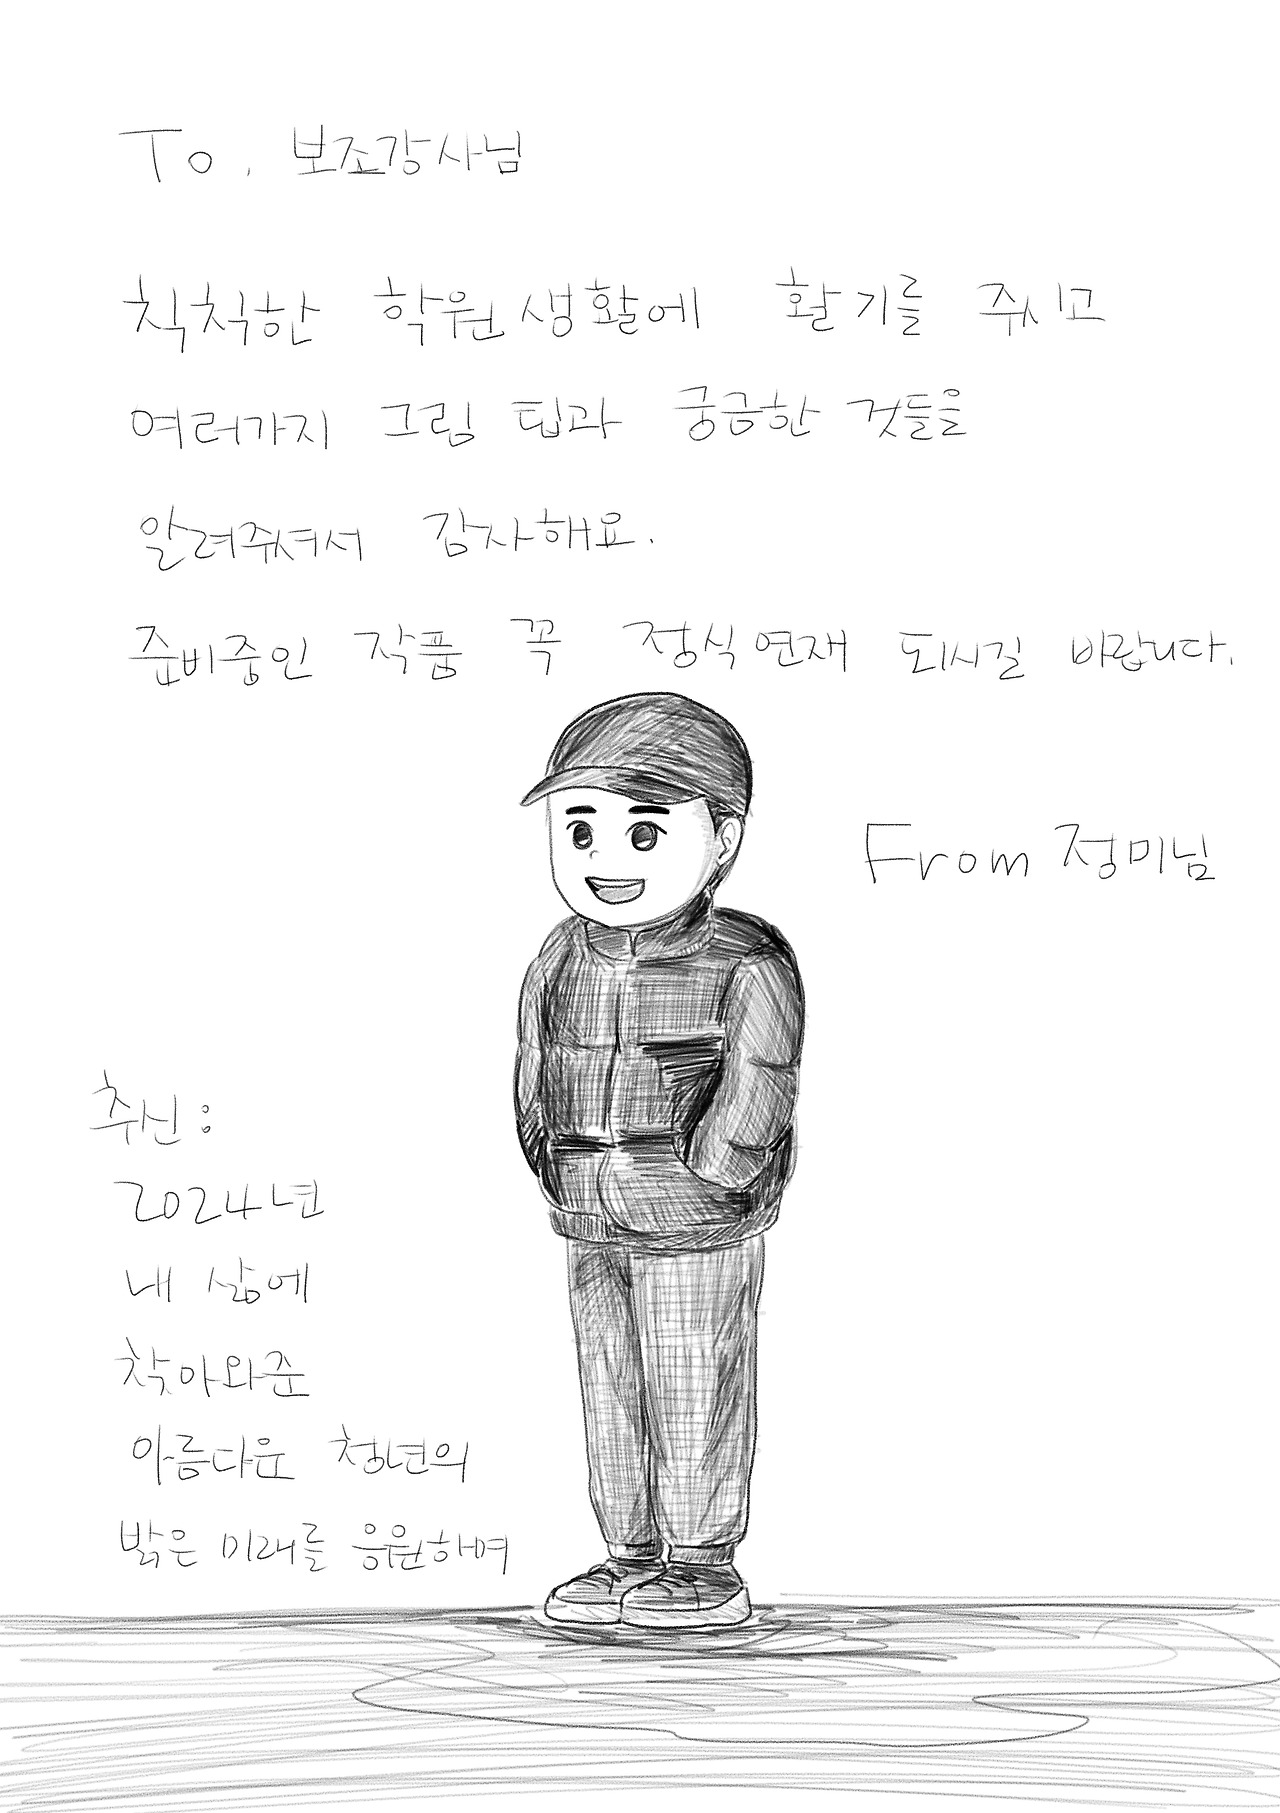 To. 보조강사님
칙칙한 학원생활에 활기를 주시고
여러가지 그림 팁과 궁금한 것들을
알려주셔서 감사해요.
준비중인 작품 꼭 정식연재 되시길 바랍니다.
From 정미님
추신:
2024년
내 삶에
찾아와준
아름다운 청년의
밝은 미래를 응원하며